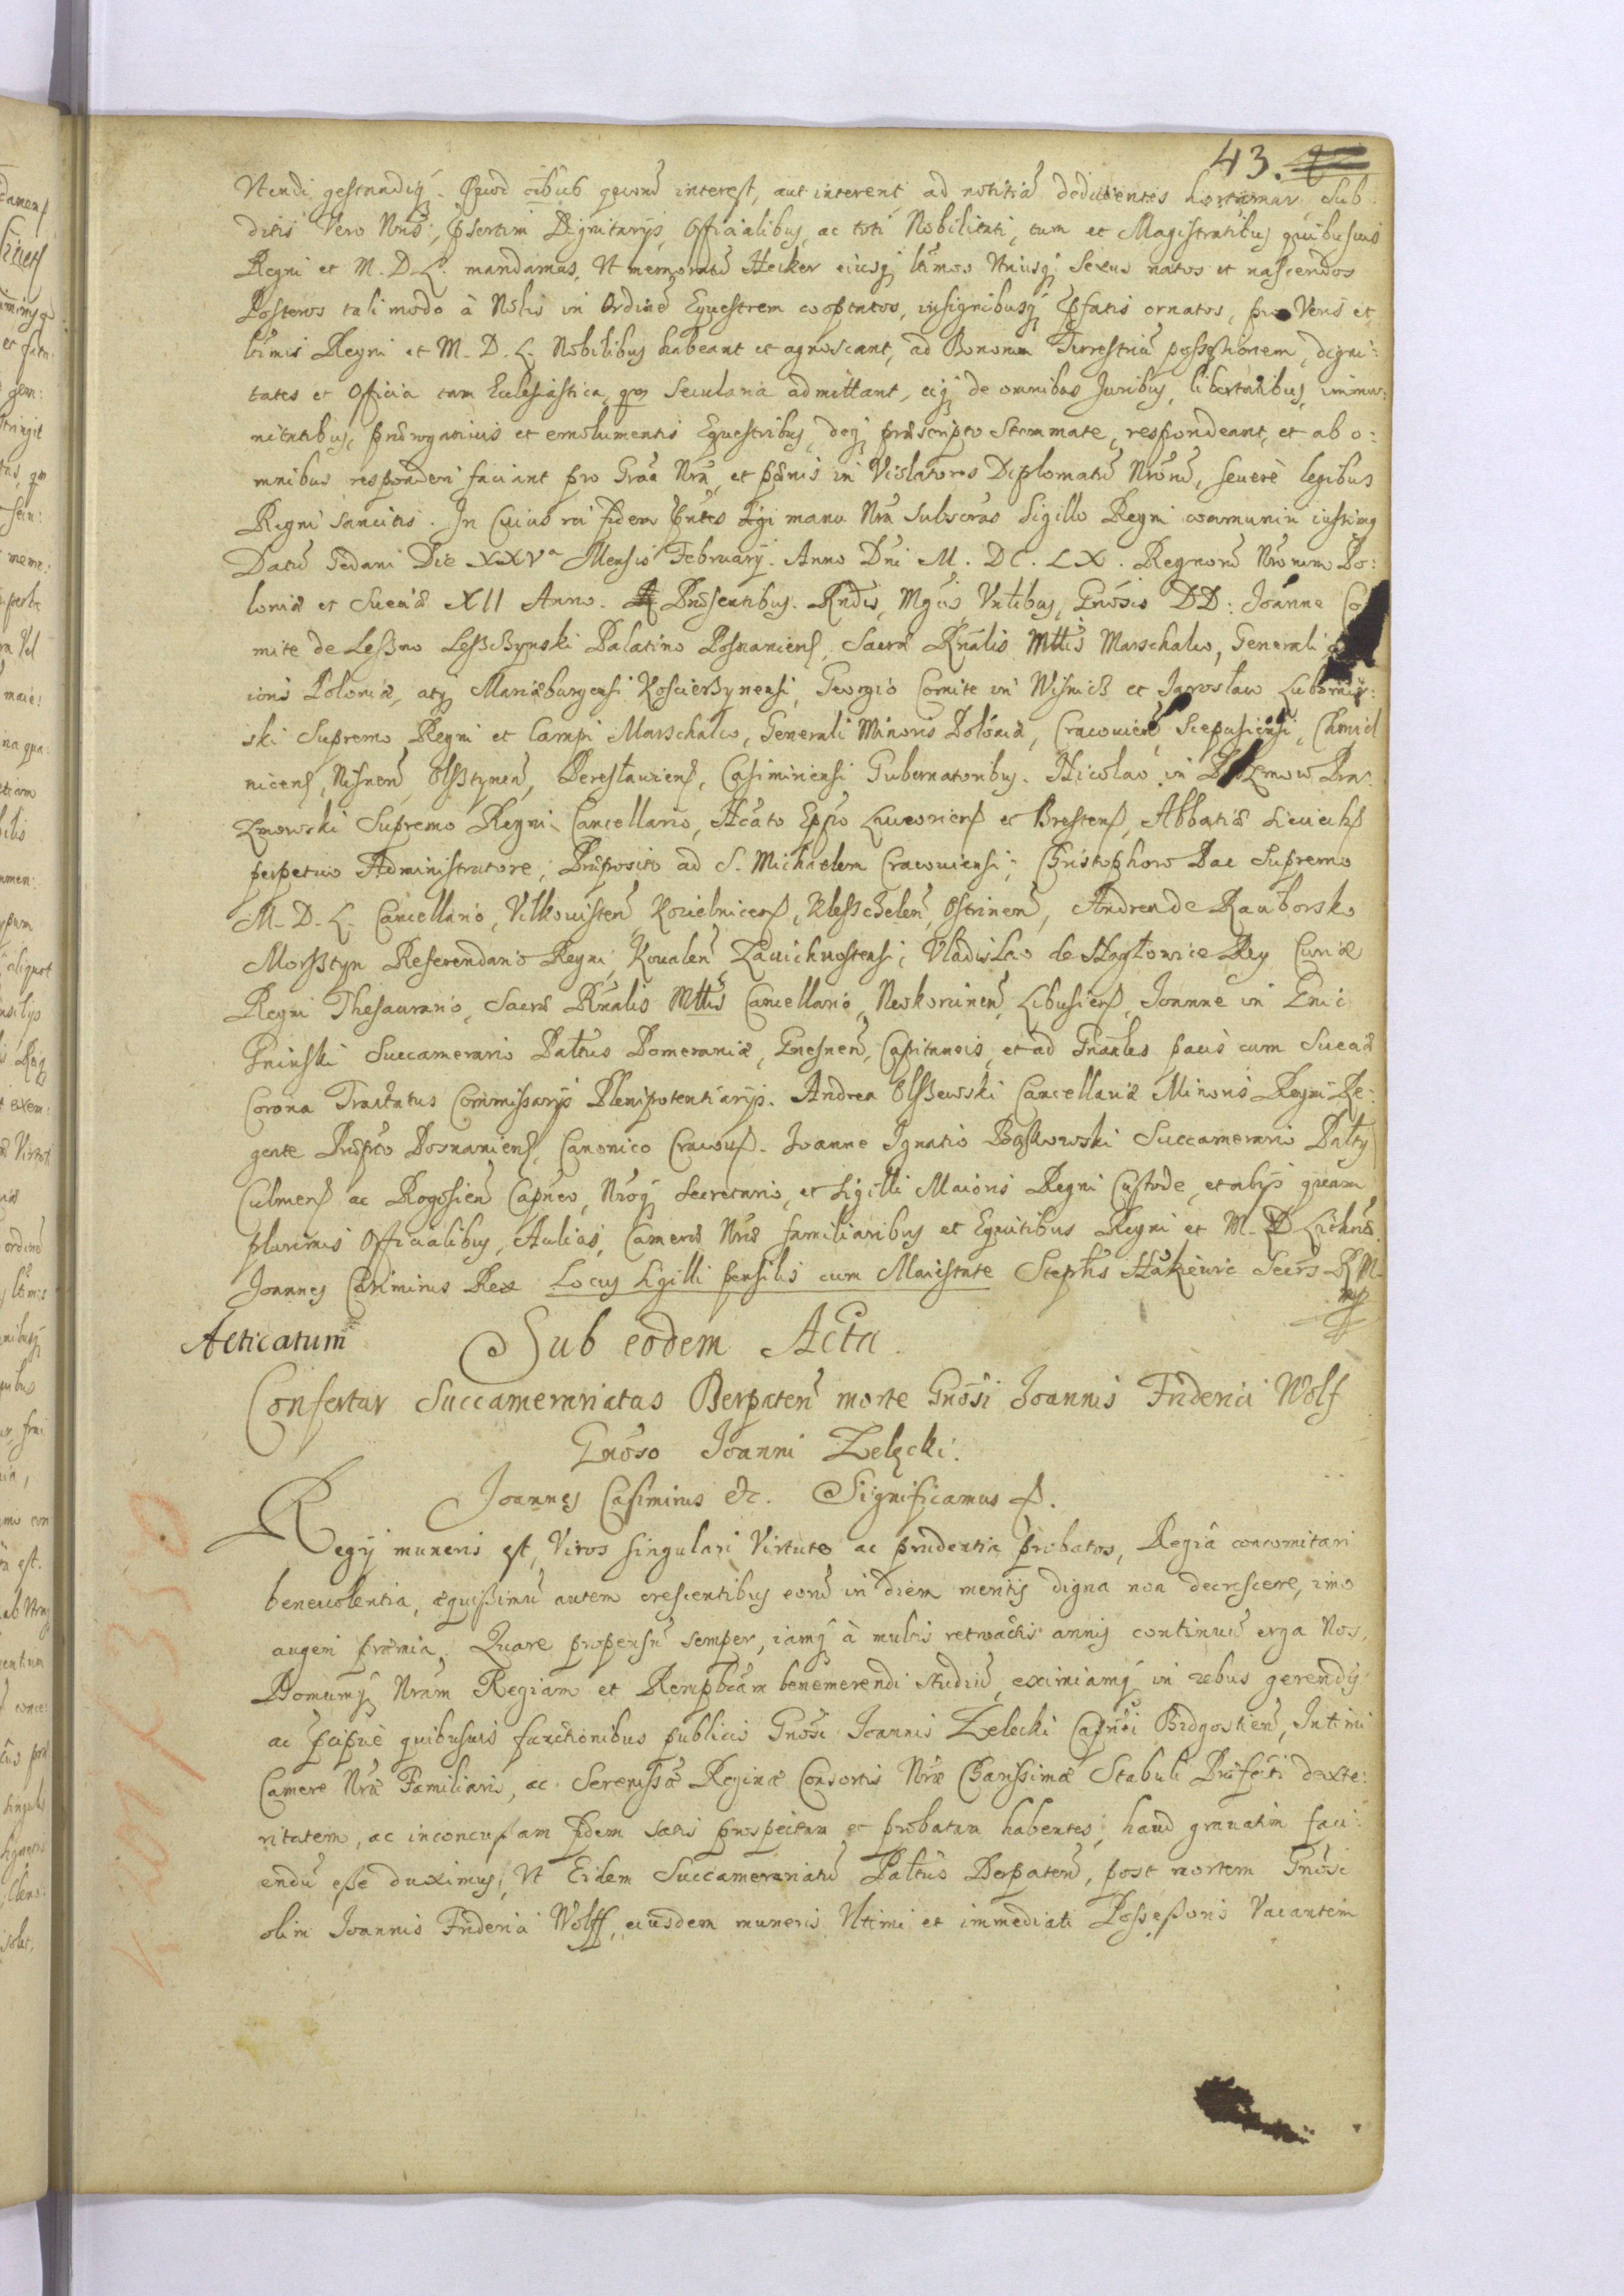 43.
Vtendi gestandiq́. Quod oībus quorū interest, aut intererit ad notitiā deducentes hortamur, Sub
ditis Vero Nr̄is, p̄sertim Dignitarijs, Officialibus, ac toti Nobilitati, tum et Magistratibus quibusuis
Regni et M. D. L. mandamus, Vt memoratū Hecker eiusq́ ltīmos Vtriusq́ Sexus natos et nascendos
Posteros tali modo à Nobis in Ordinē Equestrem cooptatos, insignibusq́ p̄fatis ornatos, pro Veris et
ltīmis Regni et M. D. L. Nobilibus habeant et agnoscant, ad Bonorum Terrestriū possessionem, digni:
tates et Officia tam Ecclesiastica, qm̄ Secularia admittant, eiq́ de omnibus Juribus, libertatibus, immu:
nitatibus, prærogatiuis et emolumentis Equestribus, deq́ præscripto Stemmate, respondeant, et ab o:
mnibus responderi faciant pro Grāa Nrā, et pœnis in Violatores Diplomatū Nrōrū, seuerè legibus
Regni sancitis. In Cuius rei fidem Pn̄tes manu Nrā Subscrās Sigillo Regni communiri iussimq
Datū Gedani Die XXVa Mensis February. Anno Dn̄i M. DC. LX. Regnorū Nrōrum Po:
loniæ et Sueciæ XII Anno. Præsentibus. Rndīs, Mgcīs Vnltibus, Gnōsis DD: Joanne Co
mite de Leßno Leßczynski Palatino Posnaniens, Sacræ Rn̄alis Mttīs Marschalco, Generali
ioris Poloniæ, atq́ Mariæburgensi Koscierzynensi, Georgio Comite in Wisnicz et Jaroslaw Lubomir:
ski Supremo Regni et Campi Marschalco, Generali Minoris Poloniæ, Cracouien̄, Scepusiensi, Chmiel
nicens, Nisnen̄, Olsztynen̄, Pereslauiens, Casimiriensi Gubernatoribus. Nicolao in Prazmow Pra
zmowski Supremo Regni Cancellario, Nōato Eppo Luceoriens et Brestens, Abbatiæ Sieciechs
perpetuo Administratore, Præposito ad S. Michaelem Cracouiensi; Christophoro Pac Supremo
M. D. L. Cancellario, Vilkouisten̄, Kozielnicens, Kleszczelen̄, Ostrinen̄, Andrea de Raciborsko
Morßtyn Referendario Regni, Koualen̄ Zauichuostensi; Vladislao de Nagłowice Rey Curiæ
Regni Thesaurario, Sacræ Rn̄alis Mttīs Cancellario, Nowkorcinen̄, Libusiens, Joanne in Gnin
Gninski Succamerario Paltus Pomeraniæ, Gnesnen̄, Capitaneis, et ad Gnrāles pacis cum Sueciæ
Corona Tractatus Commissarijs Plenipotentiarijs. Andrea Olszewski Cancellariæ Minoris Regni Re:
gente Præpto Posnaniens, Canonico Cracous. Joanne Ignatio Bąkowski Succamerario Paltus
Culmens ac Rogosien̄ Capn̄eo, Nrōq́ Secretario, et Sigilli Maioris Regni Custode, et alijs quam
plurimis Officialibus, Aulicis, Cameræ Nrǣ familiaribus et Equitibus Regni et M. D. Lithuæ.
Joannes Casimirus Rex Locus Sigilli pensilis cum Maiestate Stephs Hankiewic Secrs R M
mp
Acticatum
Sub eodem Acta.
Confertur Succamerariatus Derpaten̄ morte Gnōsi Joannis Friderici Wolf
Gnōso Joanni Zelęcki.
Joannes Casimirus &c. Significamus &.
Regij muneris est, Viros singulari Virtute ac prudentia probatos, Regiâ concomitari
beneuolentia, æquissimū autem crescentibus eorū in diem meritis digna non decrescere, imo
augeri præmia. Quare propensū semper, iamq́ à multis retroactis annis continuū erga Nos,
Domumq́ Nrām Regiam et Rempbcām benemerendi studiū, eximiamq́ in rebus gerendis
ac p̄cipuè quibusuis functionibus publicis Gnōsi Joannis Zelecki Capn̄ei Bidgostien̄, Intimi
Cameræ Nrǣ Familiaris, ac Serenissæ Reginæ Consortis Nrǣ Charissimæ Stabuli Præfecti dexte:
ritatem, ac inconcussam fidem satis prospectam et probatam habentes, haud grauatim faci:
endū esse duximus, Vt Eidem Succamerariatū Paltūs Derpaten̄, post mortem Gnōsi
olim Joannis Friderici Wolff, eiusdem muneris Vltimi et immediati Possessoris Vacantem